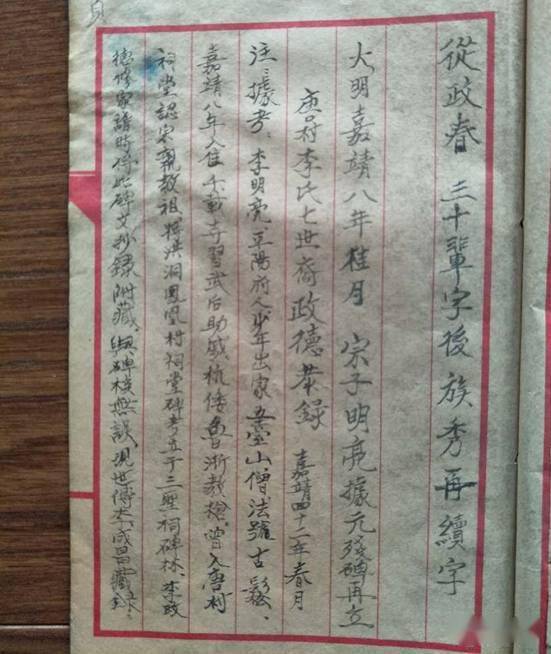 從政春 三十輩字後族秀再續字
大明嘉靖八年桂月 宗子明亮據元殘碑再立
唐村李氏七世裔政德恭錄 嘉靖四十二年春月
注:據考:李明亮,平陽府人少年出家五臺山僧法號古鬆、
嘉靖八年入住千載寺習武后助戚抗倭魯浙教槍,曾入唐村
祠堂認宗親教祖,將洪洞鳳凰村祠堂碑考立于三聖祠碑林、李政
德修家譜時將此碑文抄錄附藏,與碑核無誤,現世傳本,成昌藏錄: